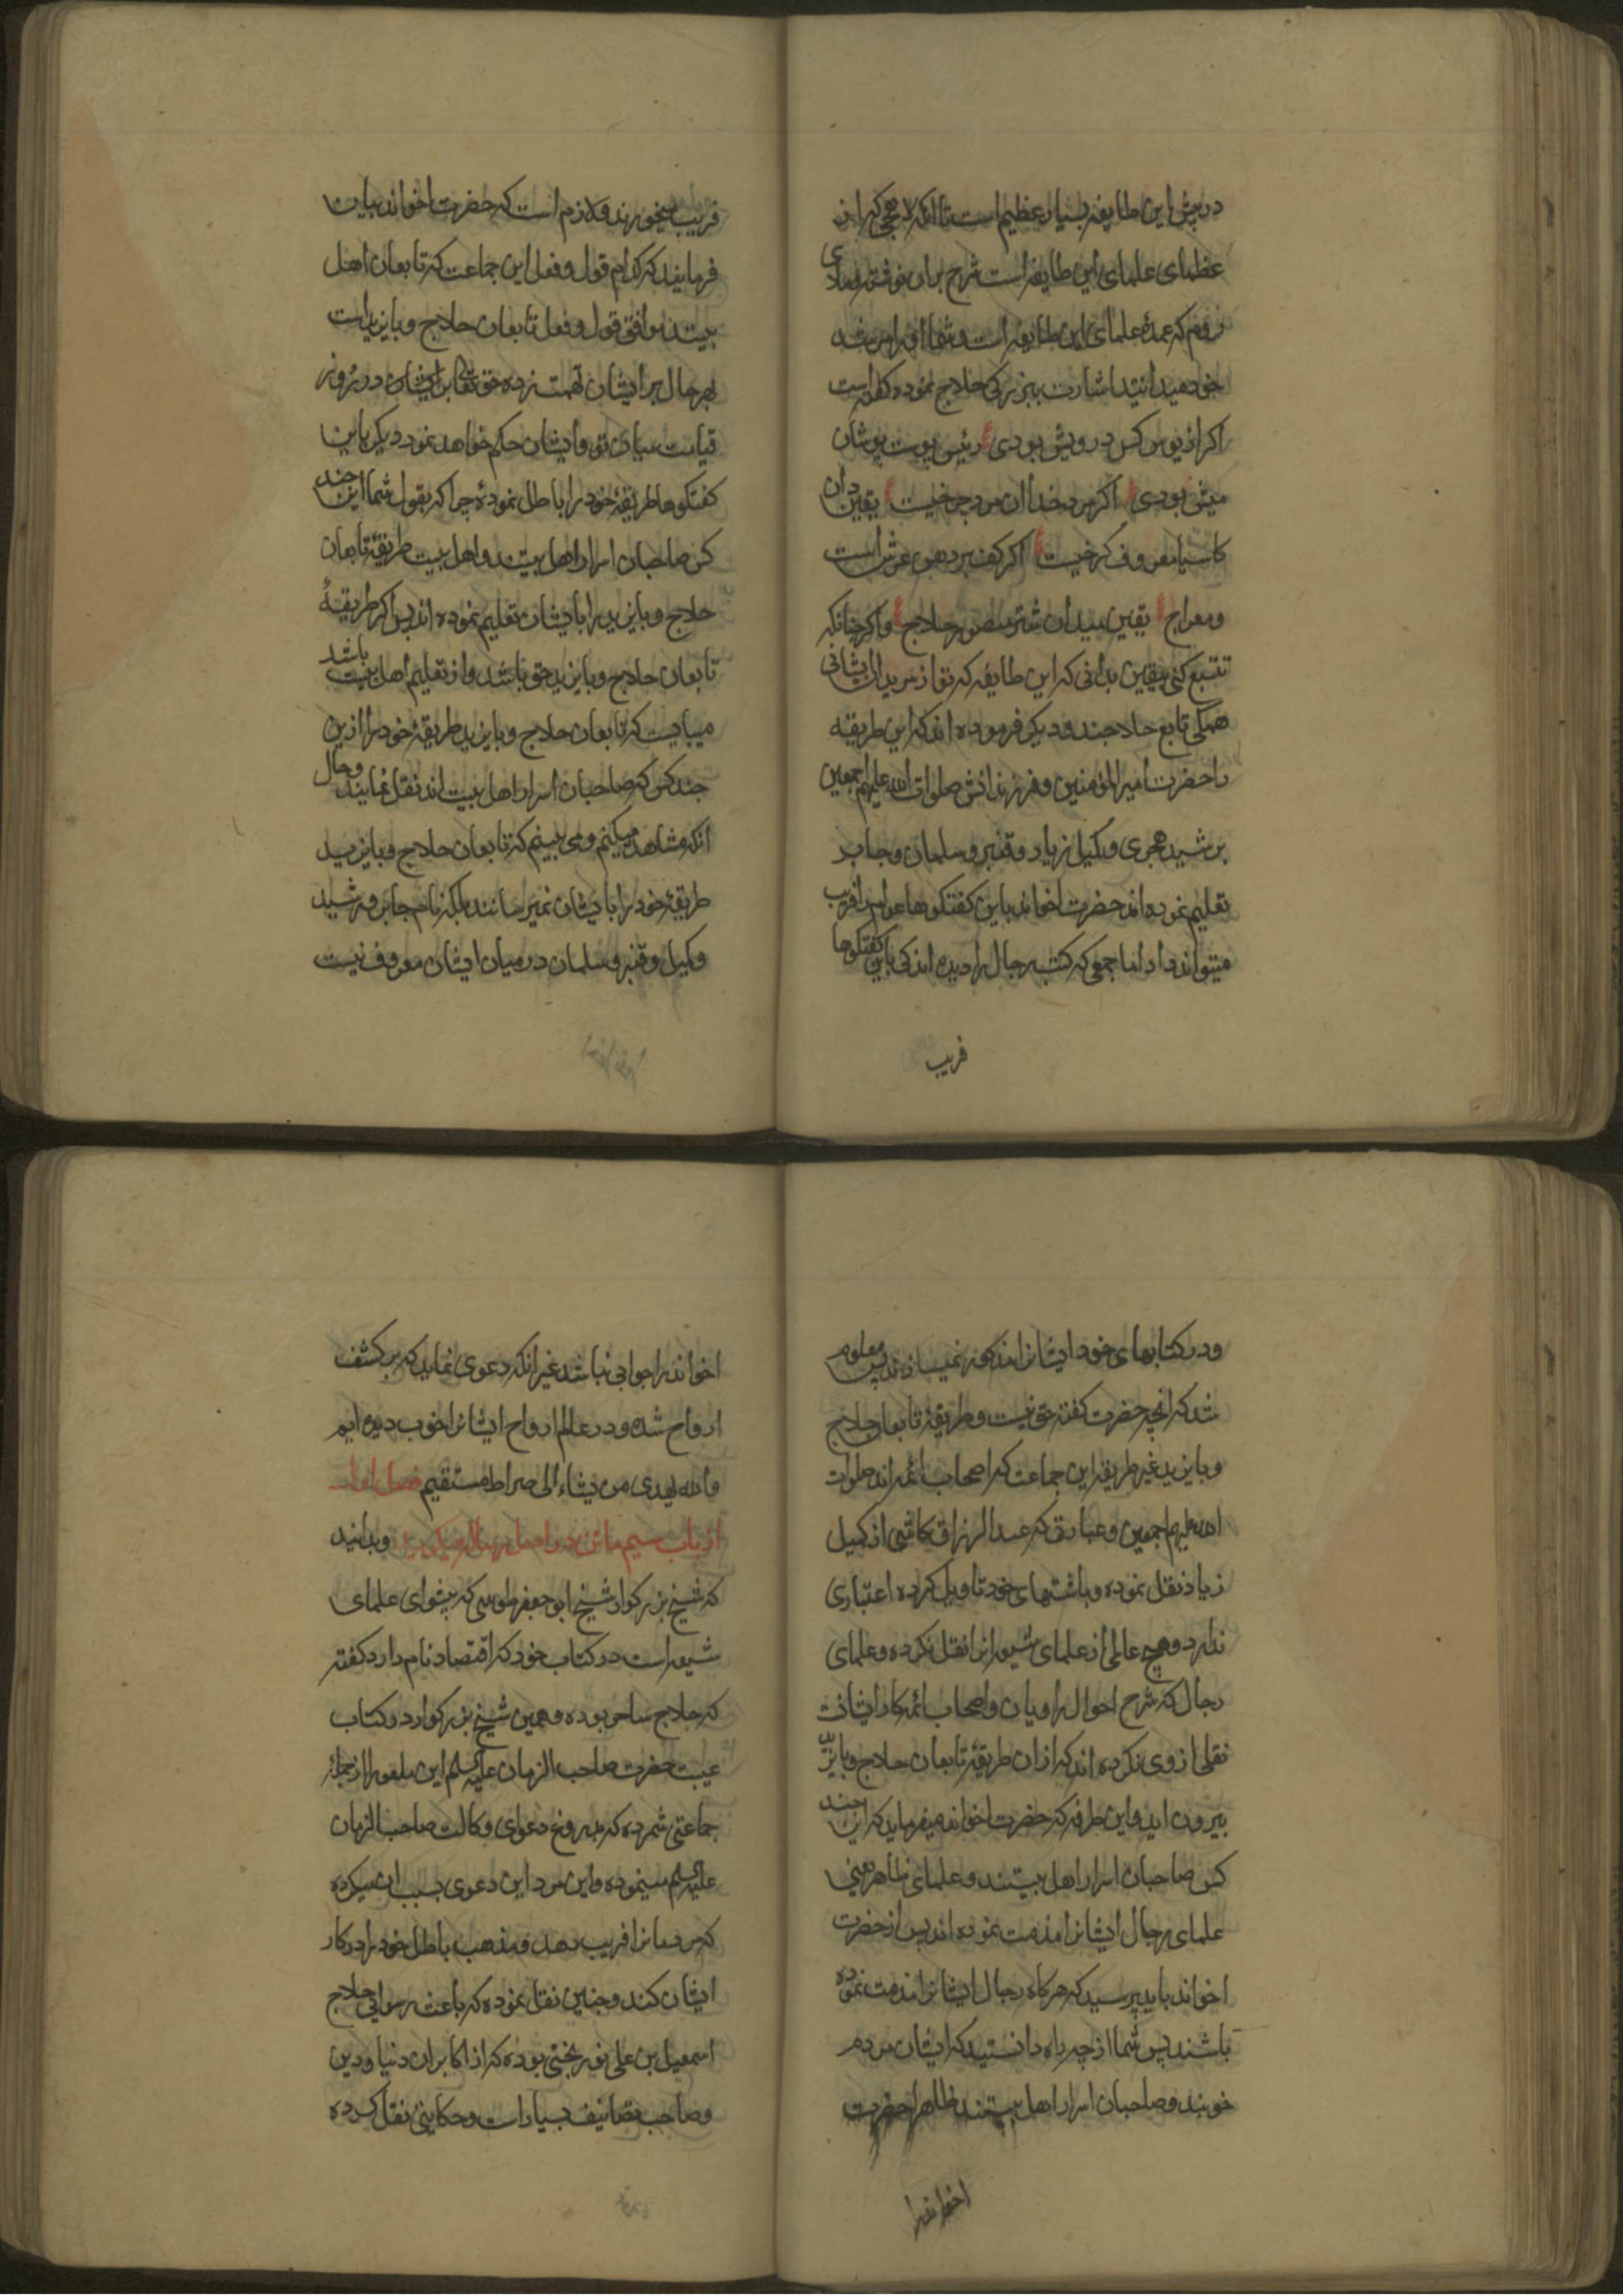 در پیش این طایفه بسیار عظیم است تا آنکه لاهجی که از
عظمای علمای این طایفه است شرح بران نوشته و ملای
روم که عمده علمای این طایفه است و شما او را مرشد
خود میدانید اشارت ببزرگی حلاج نموده گفته است
اکر از پوس کس درویش بودی رئیس پوست پوشان
میش بودی اکر مرد خدا آن مرد چرخیست یقین دان
کاسیا معروف کرخیست اکر کف بر دهن عرش است
و معراج یقین میدان شتر منصور حلاج و اکر چنانکه
تتبع کنی بیقین بدانی که این طایفه که تو از مریدان ایشانی
همکی تابع حلاجند و دیکر فرموده اند که این طریقه
را حضرت امیر المؤمنین و فرزندانش صلوات الله علیهم اجمعین
برشید هجری و کمیل زیاد و قنبر و سلمان و جابر
تعلیم نموده اند حضرت اخوند باین کفتکوها عوام را فریب
میتواند داد اما جمعی که کتب رجال را دیده اند کی باین کفتکوها
فریب
فریب میخورند و لازم است که حضرت اخوند بیان
فرمایند که کدام قول و فعل این جماعت که تابعان اهل
بیتند موافق قول و فعل تابعان حلاج و بایزید است
بهر حال بر ایشان تهمت زده حق تعالی برایشان در روز
قیامت میان تو و ایشان حکم خواهد نمود دیکر باین
کفتکوها طریقه خود را باطل نمودهٔ چرا که بقول شما این چند
کس صاحبان اسرار اهل بیتند و اهل بیت طریقهٔ تابعان
حلاج و بایزید را بایشان تعلیم نموده اند پس اکر طریقهٔ
تابعان حلاج و بایزید حق باشد و از تعلیم اهل بیت باشد
میبایست که تابعان حلاج و بایزید طریقهٔ خود را ازین
چند کس که صاحبان اسرار اهل بیت اند نقل نمایند و حال
آنکه مشاهده میکنم و می بینم که تابعان حلاج و بایزید
طریقهٔ خود را بایشان نمیرسانند بلکه نام جابر و رشید
و کمیل و قنبر و سلمان در میان ایشان معروف نیست
و در کتابهای خود ایشانرا مذکور نمیسازند پس معلوم
شد که آنچه حضرت کفته حق نیست و طریقهٔ تابعان حلاج
و بایزید غیر طریقه این جماعت که اصحاب ائمه اند صلوات
الله علیهم اجمعین و عبارتی که عبد الرزاق کاشی از کمیل
زیاد نقل نموده و باشتهای خود تاویل کرده اعتباری
ندارد و هیچ عالمی از علمای شیعه انرا نقل نکرده و علمای
رجال که شرح احوال راویان و اصحاب ائمه کار ایشانست
نقلی از وی نکرده اند که ازان طریقهٔ تابعان حلاج و بایزید
بیرون اید و این طرفه که حضرت اخوند میفرماید که این چند
کس صاحبان اسرار اهل بیتند و علمای ظاهر یعنی
علمای رجال ایشانرا مذمت نموده اند پس از حضرت
اخوند باید پرسید که هرکاه رجال ایشانرا مذمت نموده
باشند پس شما از چه راه دانستید که ایشان مردم
خوبند و صاحبان اسرار اهل بیتند ظاهرا حضرت
اخوندرا
اخوند را جوابی نباشد غیر انکه دعوی نماید که بر کشف
ارواح شده و در عالم ارواح ایشانرا خوب دیده ایم
و الله یهدی من یشاء الی صراط مستقیم فصل اول
از باب سیم و بدانید
که شیخ بزرکوار شیخ ابو جعفر طوسی که پیشوای علمای
شیعه است در کتاب خود که اقتصاد نام دارد کفته
که حلاج ساحر بوده و همین شیخ بزرکوار در کتاب
غیبت حضرت صاحب الزمان علیه السلم این ملعونرا از جملهٔ
جماعتی شمرده که بدروغ دعوای وکالت صاحب الزمان
علیه السلم مینموده و این مرد این دعوی بسبب ان میکرده
که مردمانرا فریب دهد و مذهب باطل خود را در کار
ایشان کند و چنین نقل نموده که باعث رسوایی حلاج
اسمعیل بن علی نوبختی بوده که از اکابران دنیا و دین
و صاحب تصانیف بسیار است و حکایتی نقل کرده